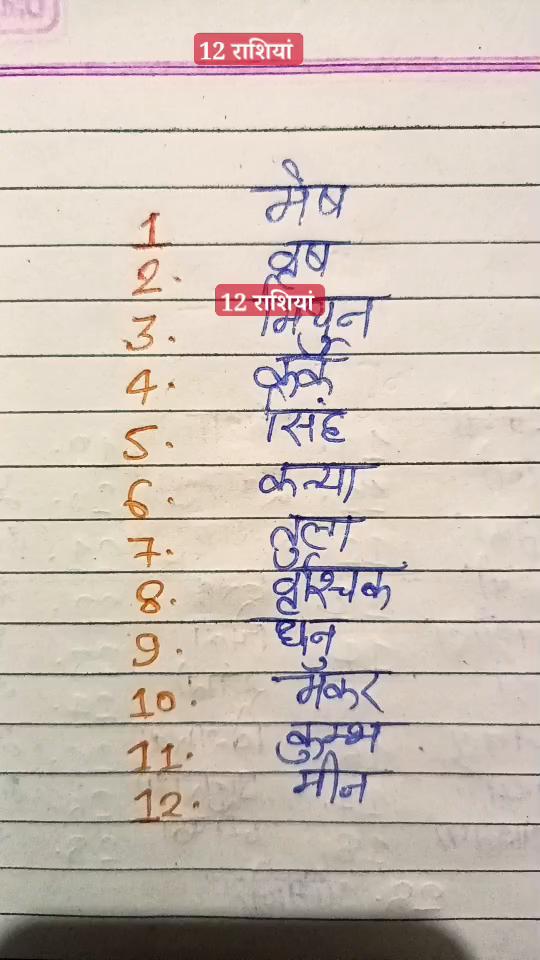 12 राशियां
1 मेष
2. वृष
12 राशियां
3. मिथुन
4. कर्क
5. सिंह
6. कन्या
7. तुला
8. वृश्चिक
9. धनु
10. मकर
11. कुम्भ
12. मीन